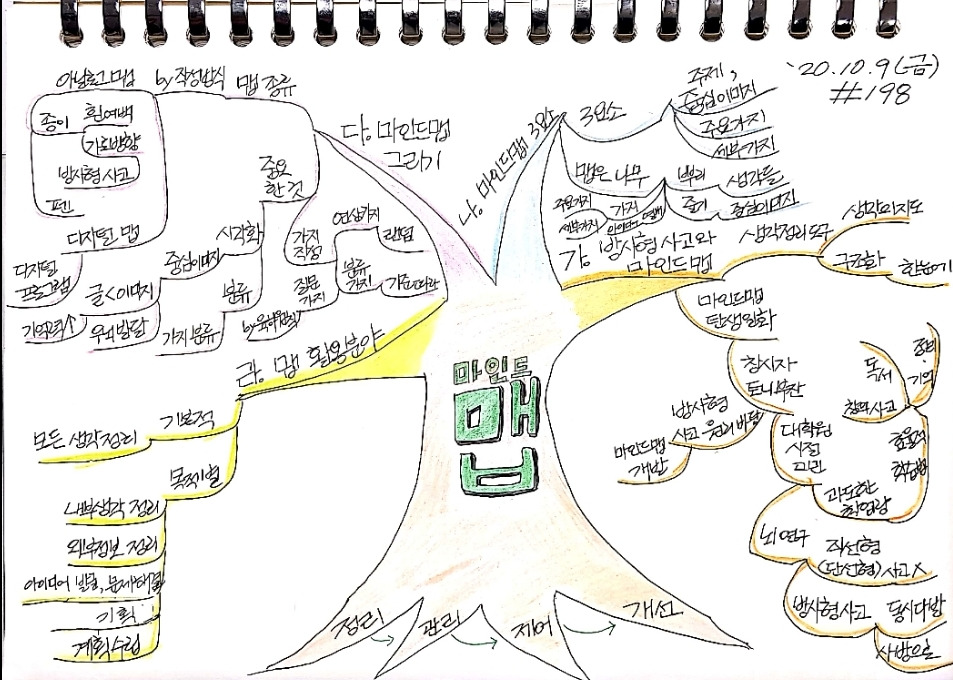 '20.10.9(금)
#198
마인드
맵
가. 방사형 사고와
마인드맵
생각정리 도구
생각의 지도
구조화
한눈에
마인드맵
탄생일화
창시자
토니부잔
대학원
시절
과도한
학업량
효율적
학습법
창의사고
독서
정리
기억
뇌연구
직선형
(단선형)사고X
방사형사고
동시다방
사방으로
방사형
사고 원리 바탕
마인드맵
개발
나. 마인드맵 3요소
3요소
주제,
중심이미지
주요가지
세부가지
맵은 나무
뿌리
생각들
줄기
중심이미지
가지
주요가지
세부가지
다. 마인드맵
그리기
맵 종류
by 작성방식
아날로그 맵
종이
흰여백
가로방향
방사형 사고
펜
디지털 맵
디지털
프로그램
중요
한 것
시각화
중심이미지
글<이미지
우뇌발달
기억력↑
분류
가지 분류
가지
작성
연상가지
랜덤
분류
가지
기준따라
질문
가지
by 육하원칙
라. 맵 활용분야
기본적
모든 생각정리
목적별
내부생각 정리
외부정보 정리
아이디어 발팀, 문제해결
기획
계획수립
정리
관리
제어
개선